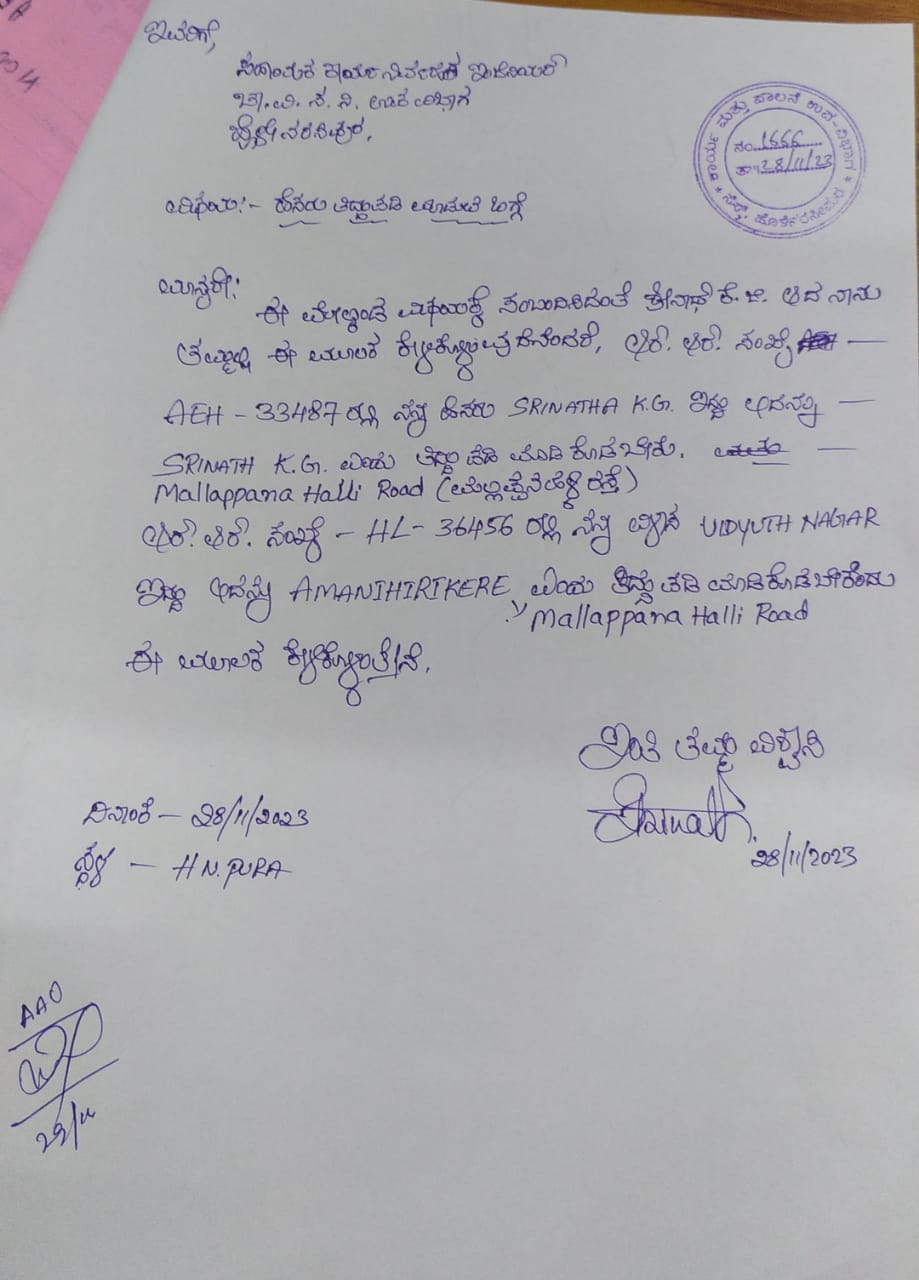 ಇವರಿಗೆ,
ಸಹಾಯಕ ಕಾರ್ಯನಿರ್ವಾಹಕ ಇಂಜಿನಿಯರ್
ಚಾ.ವಿ.ಸ.ನಿ. ಉಪ ವಿಭಾಗ
ಹೊಳೇನರಸೀಪುರ.
ಕಾರ್ಯ ಮತ್ತು ಪಾಲನೆ ಉಪ-ವಿಭಾಗ
ನಂ. 1666
ತಾ: 28/11/23
ವಿಷಯ:- ಹೆಸರು ತಿದ್ದುಪಡಿ ಮಾಡುವ ಬಗ್ಗೆ
ಮಾನ್ಯರೇ;
ಈ ಮೇಲ್ಕಂಡ ವಿಷಯಕ್ಕೆ ಸಂಬಂದಿಸಿದಂತೆ ಶ್ರೀನಾಥ್ ಕೆ.ಜಿ. ಆದ ನಾನು
ತಮ್ಮಲ್ಲಿ ಈ ಮೂಲಕ ಕೇಳಿಕೊಳ್ಳುವುದೆನೆಂದರೆ, ಆರ್. ಆರ್. ಸಂಖ್ಯೆ —
AEH - 33487 ರಲ್ಲಿ ನನ್ನ ಹೆಸರು SRINATHA K.G. ಇದ್ದು ಅದನ್ನು —
SRINATH K.G. ಎಂದು ತಿದ್ದುಪಡಿ ಮಾಡಿ ಕೊಡಬೇಕು. —
Mallappana Halli Road (ಮಲ್ಲಪ್ಪನಹಳ್ಳಿ ರಸ್ತೆ)
ಆರ್. ಆರ್. ಸಂಖ್ಯೆ - HL - 36456 ರಲ್ಲಿ ನನ್ನ ವಿಳಾಸ VIDYUTH NAGAR
ಇದ್ದು ಅದನ್ನು AMANIHIRIKERE ಎಂದು ತಿದ್ದುಪಡಿ ಮಾಡಿಕೊಡಬೇಕೆಂದು
Mallappana Halli Road
ಈ ಮೂಲಕ ಕೇಳಿಕೊಳ್ಳುತ್ತೇನೆ.
ಇಂತಿ ತಮ್ಮ ವಿಶ್ವಾಸಿ
Srinath.
28/11/2023
ದಿನಾಂಕ - 28/11/2023
ಸ್ಥಳ - H N. PURA
AAO
29/11